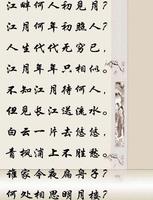 江畔何人初見月？
江月何年初照人？
人生代代无穷已，
江月年年只相似。
不知江月待何人，
但见长江送流水。
白云一片去悠悠，
青枫浦上不胜愁。
谁家今夜扁舟子？
何处相思明月楼？